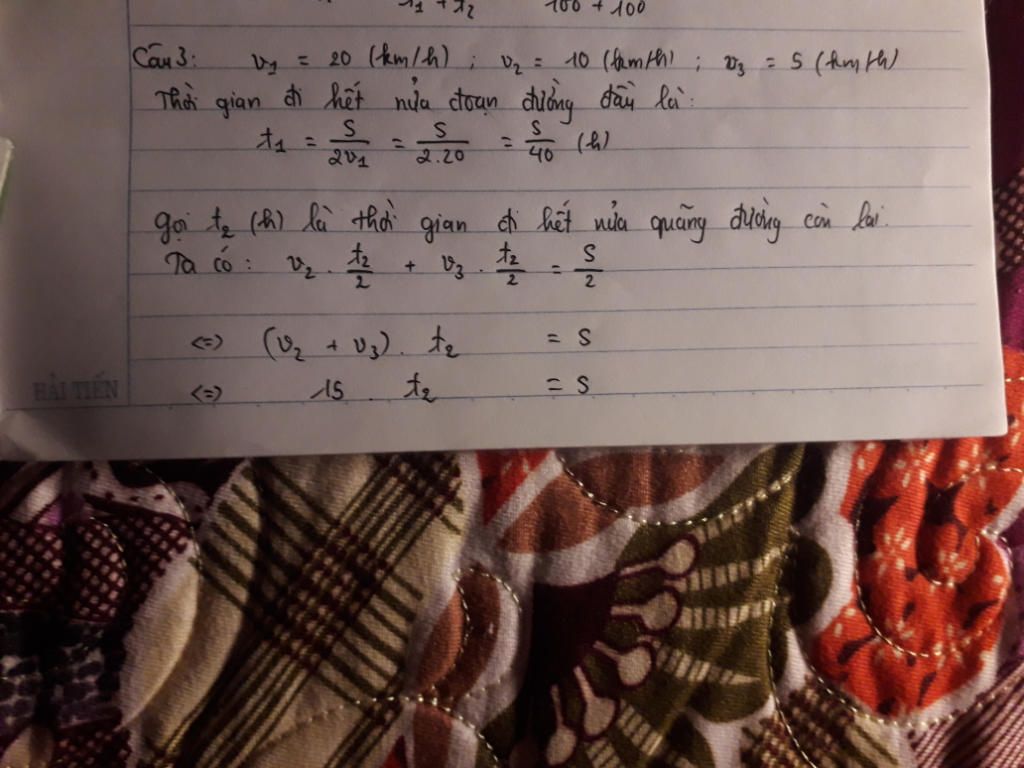 t₁ + t₂ 100 + 100
Câu 3: v₁ = 20 (km/h) ; v₂ = 10 (km/h) ; v₃ = 5 (km/h)
Thời gian đi hết nửa đoạn đường đầu là:
t₁ = S/2v₁ = S/2.20 = S/40 (h)
gọi t₂ (h) là thời gian đi hết nửa quãng đường còn lại.
Ta có : v₂ . t₂/2 + v₃ . t₂/2 = S/2
<=> (v₂ + v₃) . t₂ = S
<=> 15 . t₂ = S
HẢI TIẾN